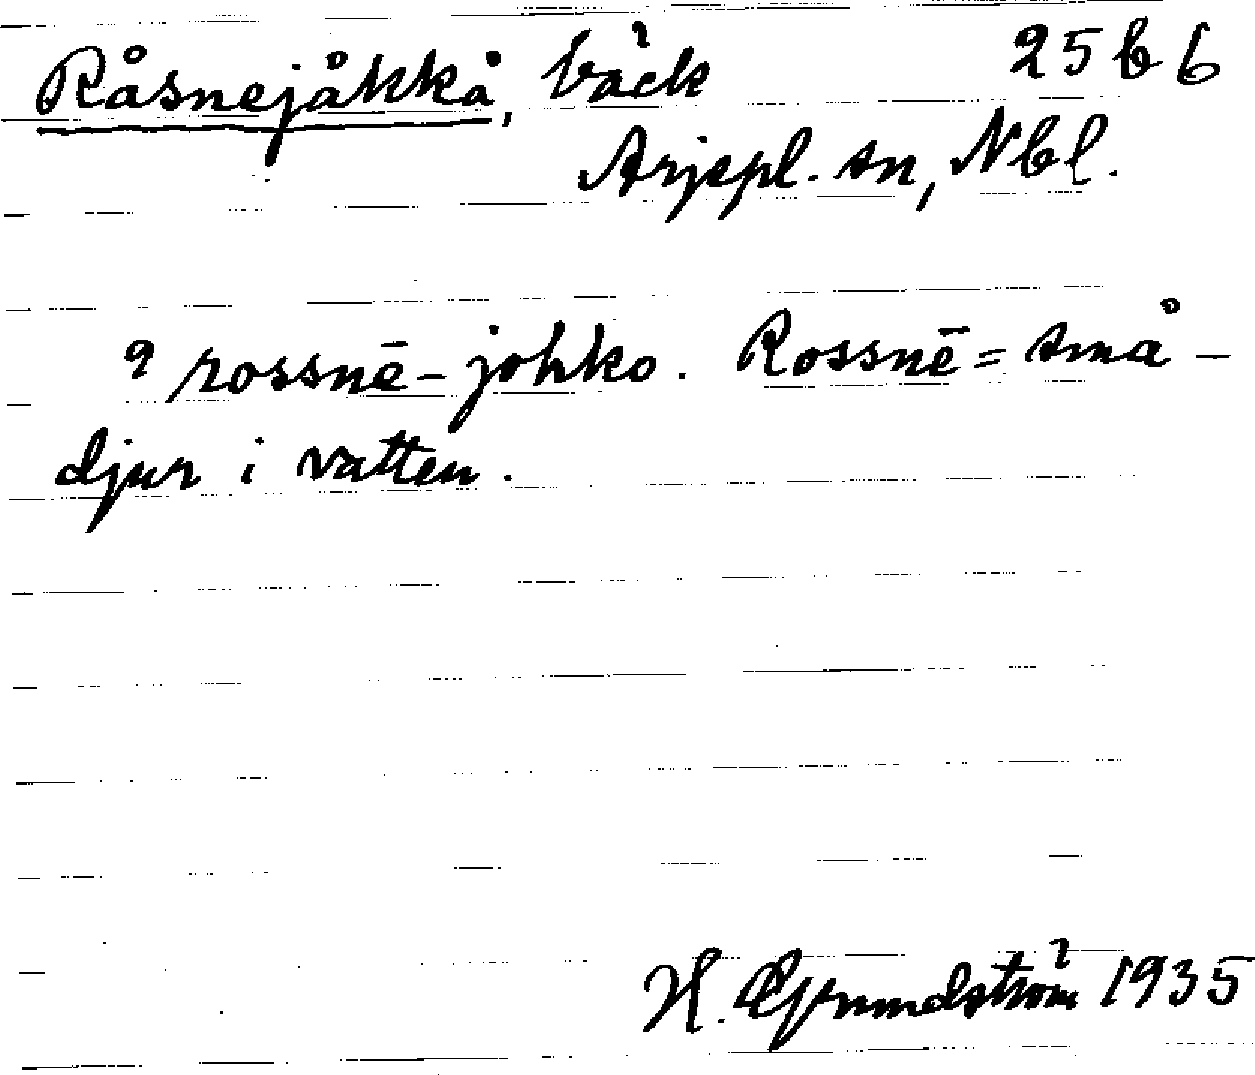 Råsnejåkkå, bäck 25 b 6
Arjepl. sn, Nbl.
rossnē-johko. Rossnē = små-
djur i vatten.
H. Grundström 1935